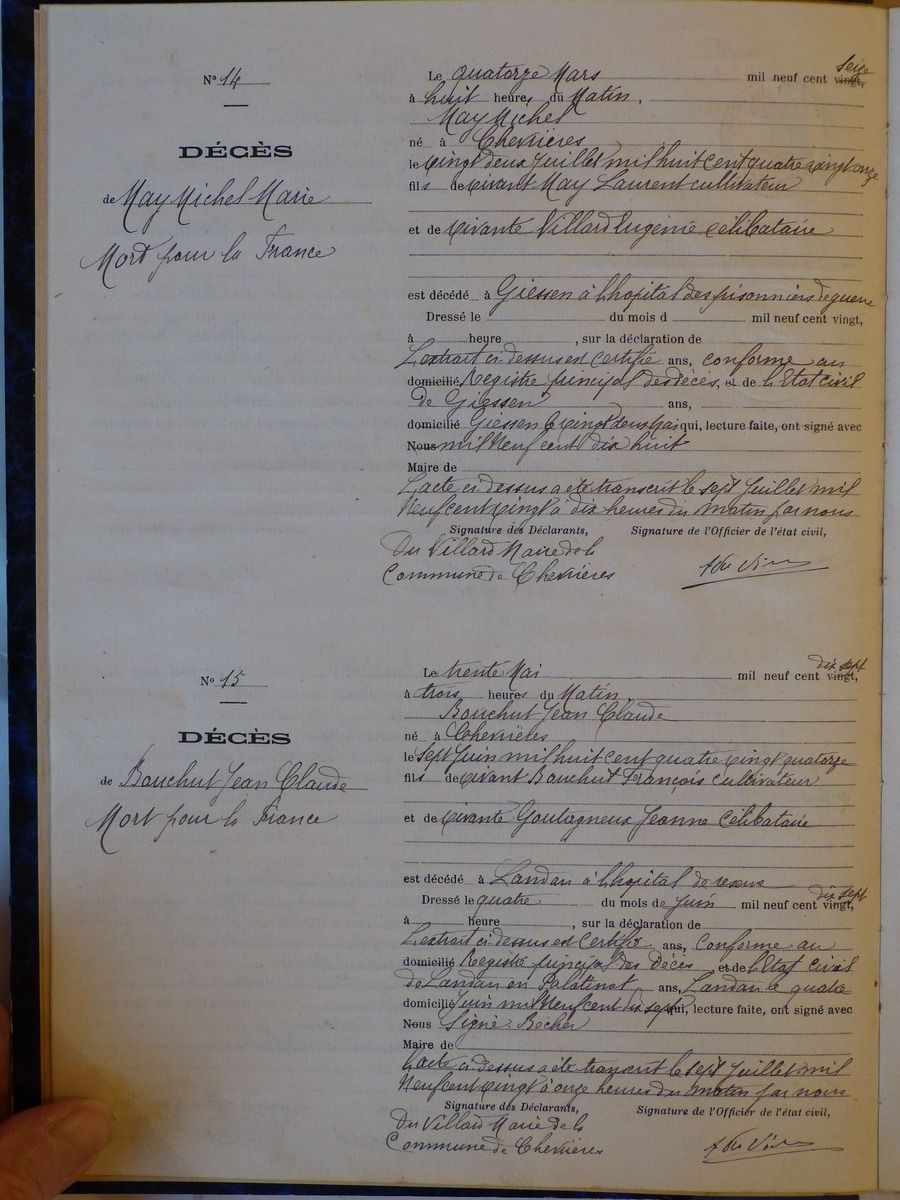 N° 14
DÉCÈS
de May Michel Marie
Mort pour la France
Le quatorze Mars mil neuf cent vingt, seize
à huit heures du Matin,
May Michel
né à Chevrières
le vingt deux Juillet mil huit cent quatre vingt onze
fils de vivant May Laurent cultivateur
et de vivante Villard Eugénie célibataire
est décédé à Giessen à l'hopital des prisonniers de guerre
Dressé le du mois d mil neuf cent vingt,
à heure , sur la déclaration de
L'extrait ci-dessus est certifié ans, conforme au
domicilié Registre principal des décès, et de l'Etat civil
de Giessen ans,
domicilié Giessen le vingt deux Mai qui, lecture faite, ont signé avec
Nous mil Neuf cent dix huit
Maire de
L'acte ci-dessus a été transcrit le sept Juillet mil
Neuf cent vingt à dix heures du matin par nous
Signature des Déclarants, Signature de l'Officier de l'état civil,
Du Villard Maire de la
Commune de Chevrières
N° 15
DÉCÈS
de Bouchut Jean Claude
Mort pour la France
Le trente Mai mil neuf cent vingt, dix sept
à trois heures du Matin,
Bouchut Jean Claude
né à Chevrières
le sept Juin mil huit cent quatre vingt quatorze
fils de vivant Bouchut François cultivateur
et de vivante Goutagneux Jeanne célibataire
est décédé à Landau à l'hopital de reserv
Dressé le quatre du mois de Juin mil neuf cent vingt, dix sept
à heure , sur la déclaration de
L'extrait ci-dessus est certifié ans, conforme au
domicilié Registre principal des Décès et de l'Etat civil
de Landau en Palatinat ans, Landau le quatre
domicilié Juin mil Neuf cent dix sept qui, lecture faite, ont signé avec
Nous Signé Becher
Maire de
L'acte ci-dessus a été transcrit le sept Juillet mil
Neuf cent vingt à onze heures du matin par nous
Signature des Déclarants, Signature de l'Officier de l'état civil,
Du Villard Maire de la
Commune de Chevrières